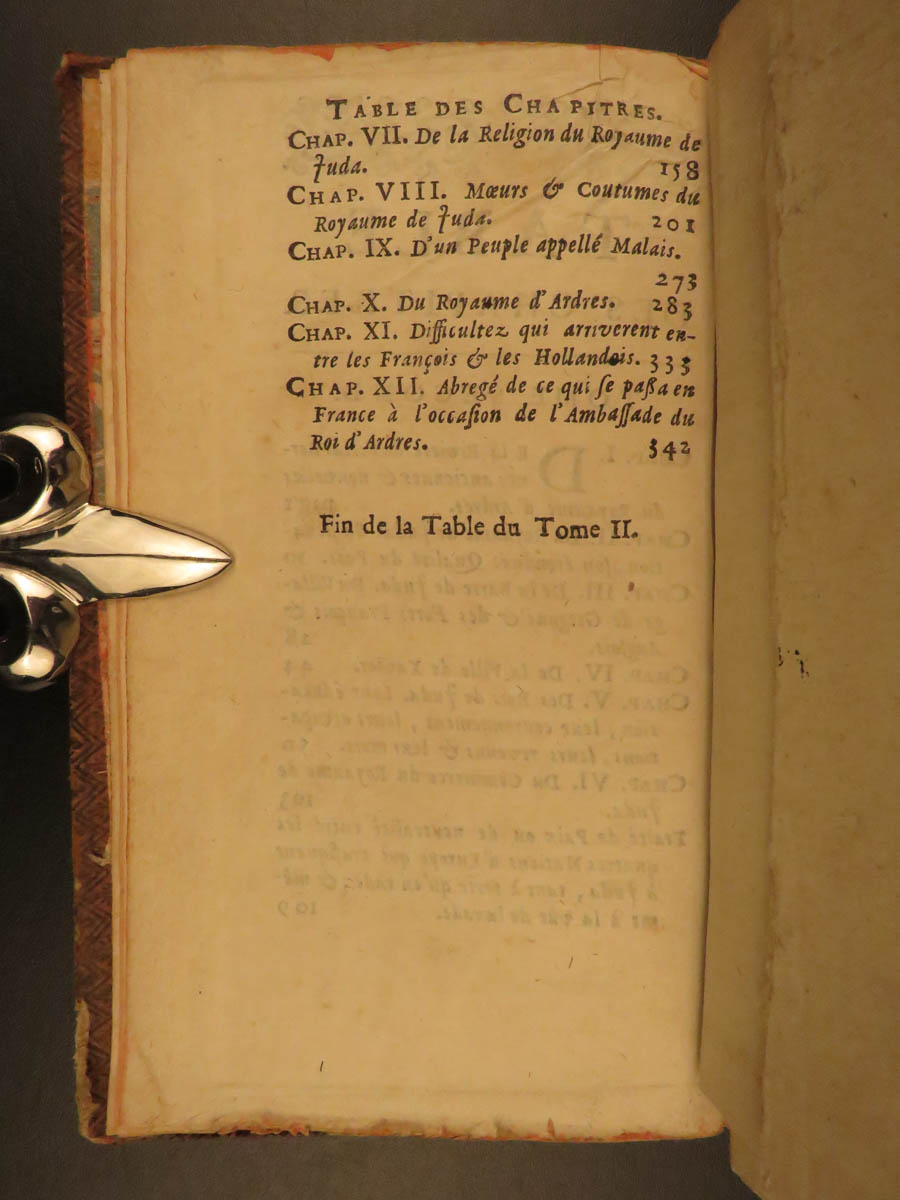 TABLE DES CHAPITRES.
CHAP. VII. De la Religion du Royaume de
Juda. 158
CHAP. VIII. Mœurs & Coutumes du
Royaume de Juda. 201
CHAP. IX. D'un Peuple appellé Malais.
273
CHAP. X. Du Royaume d'Ardres. 283
CHAP. XI. Difficultez qui arriverent en-
tre les François & les Hollandois. 333
CHAP. XII. Abregé de ce qui ſe paßa en
France à l'occaſion de l'Ambaſſade du
Roi d'Ardres. 342
Fin de la Table du Tome II.